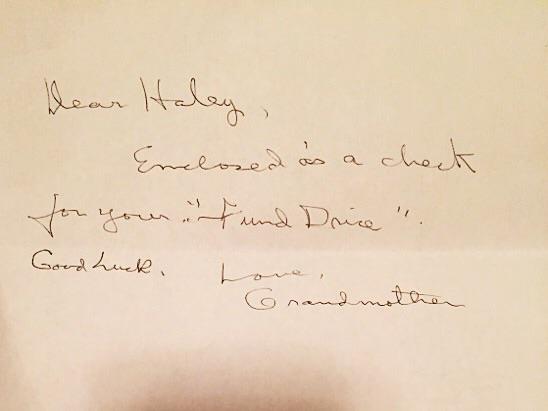 Dear Haley,
Enclosed is a check
for your "Fund Drive".
Good Luck. Love,
Grandmother